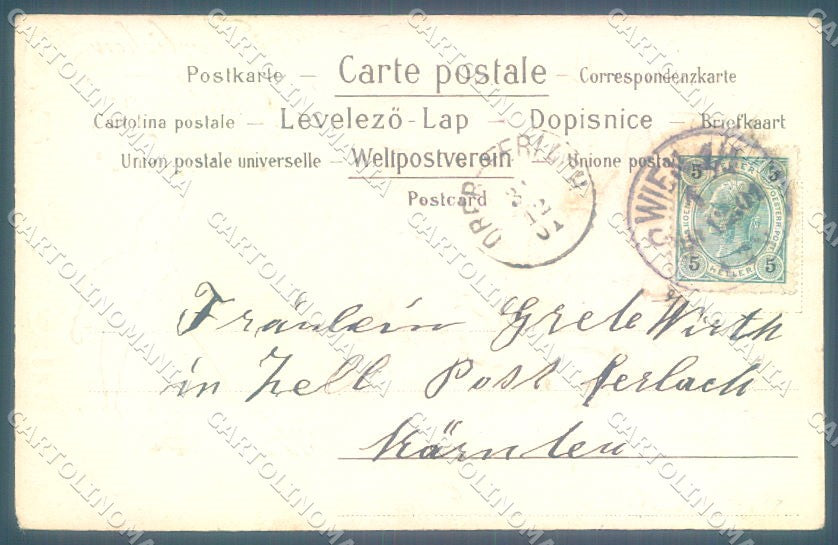 Postkarte – Carte postale – Correspondenzkarte
Cartolina postale – Levelező-Lap – Dopisnice – Briefkaart
Union postale universelle – Weltpostverein – Unione postale
Postcard
WIEN
5 5
5 HELLER 5
Fräulein Grete Wirth
in Zell Post Ferlach
Kärnten
CARTOLINOMANIA